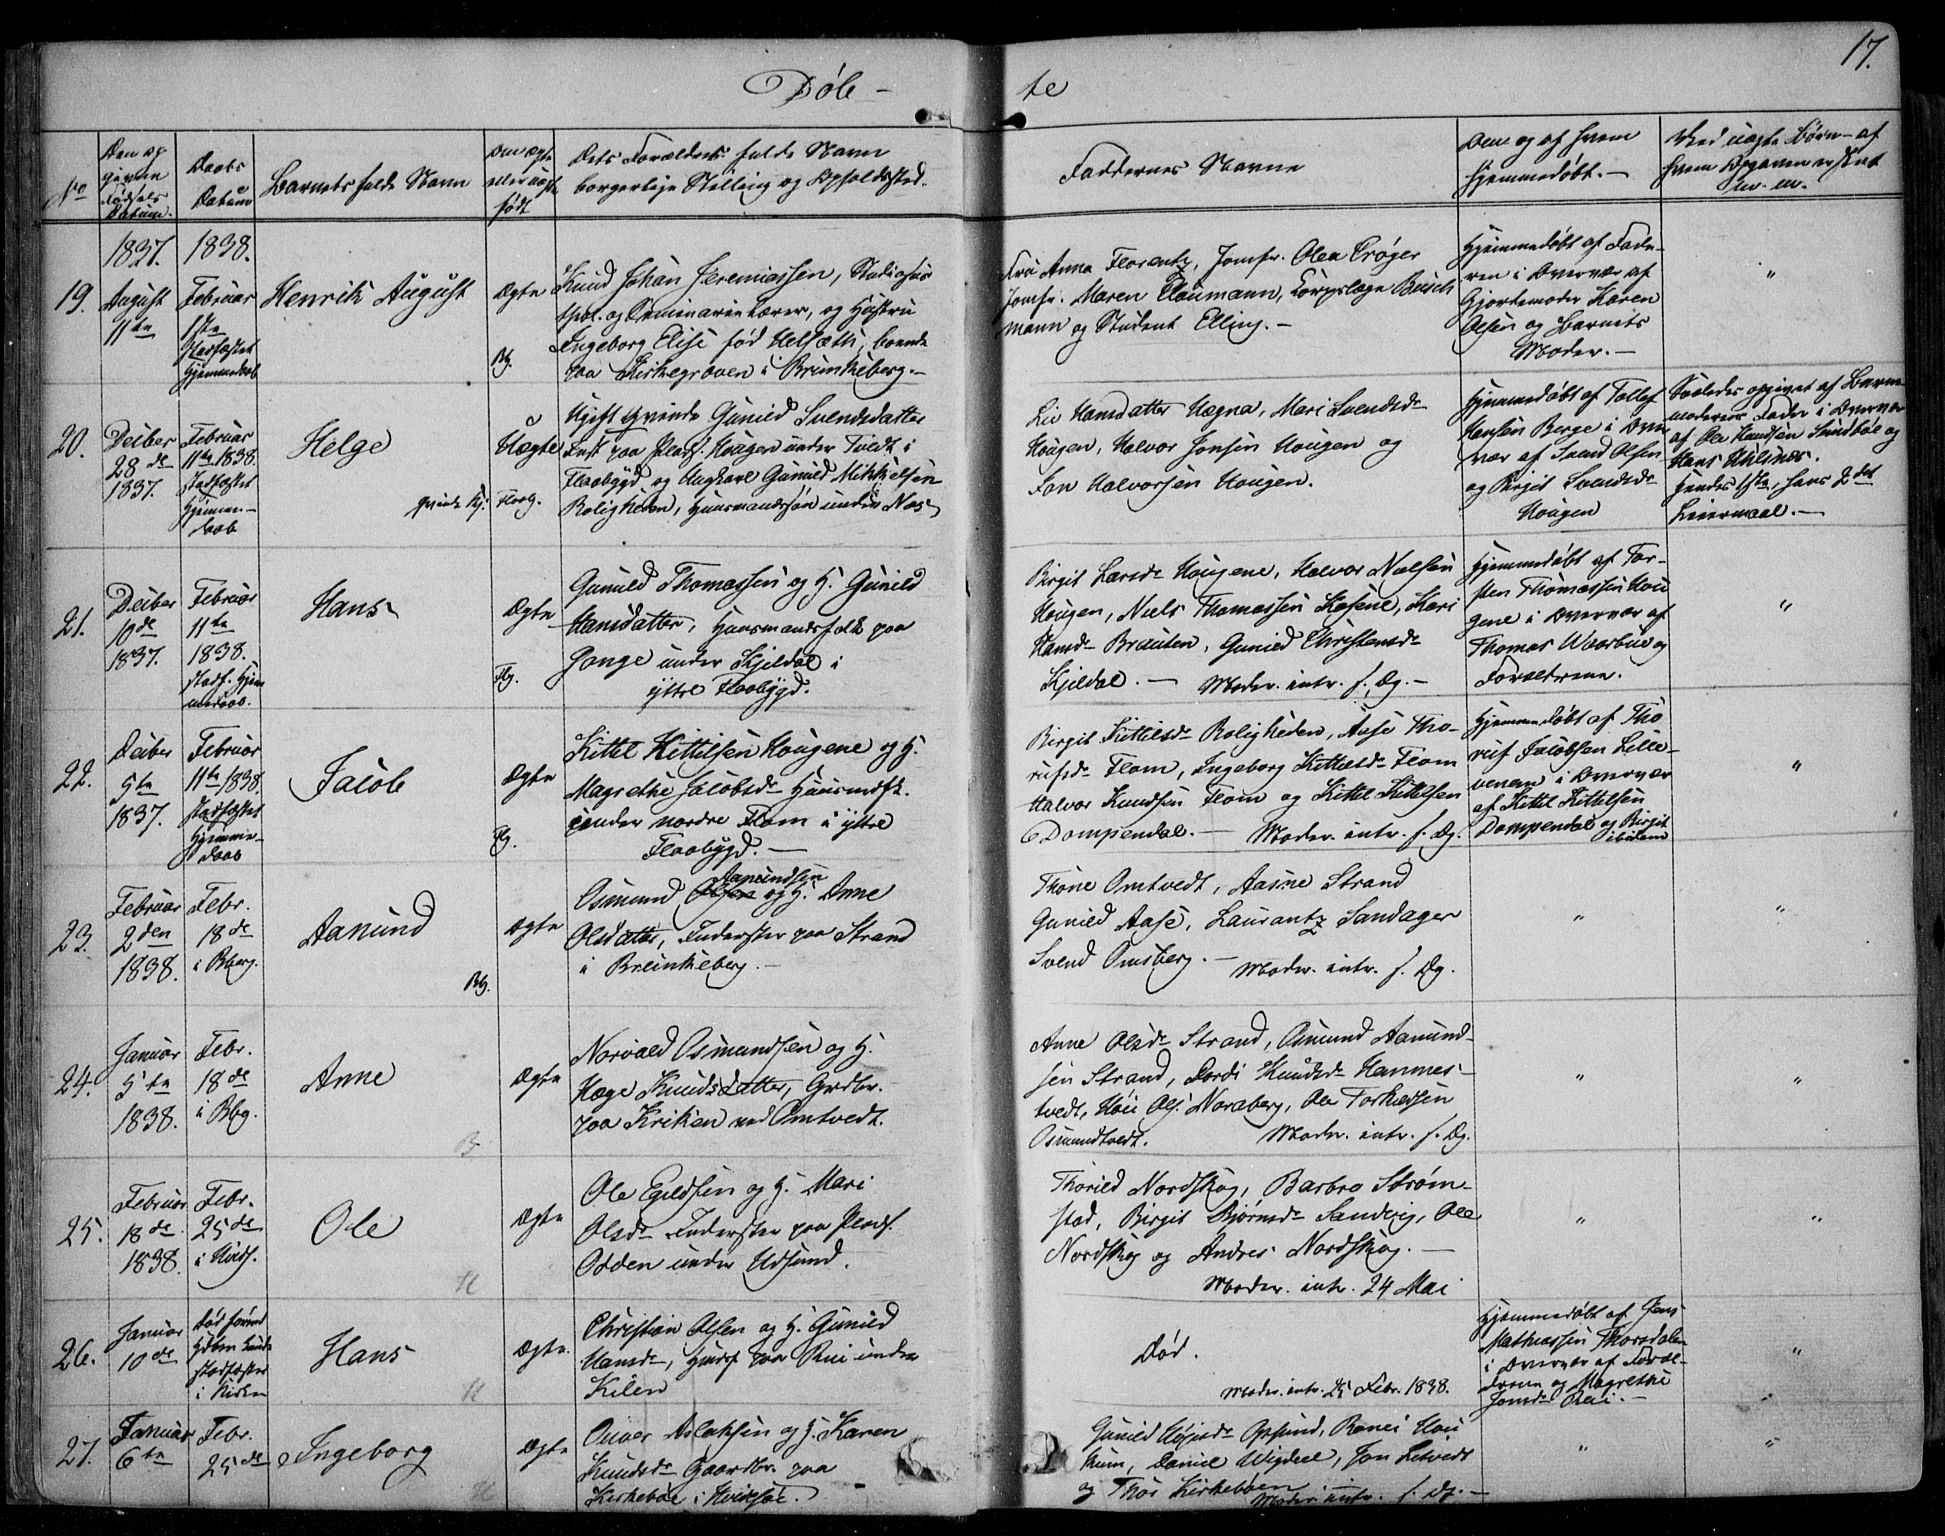 17.
Døb-
te
No
Den op
givne
Fødsels
Datum.
Daabs
Datum
Barnets fulde Navn
Om ægte
eller uægte
født
Dets Forældres fulde Navn
borgerlige Stilling og Opholdssted.
Faddernes Navne
Om og af hvem
hjemmedøbt.-
Ved uægte Børn-af
hvem Opgaven er skeet
m. m.
19.
1837.
August
11te
1838.
Februar
1ste
stadfæstet
Hjemmedaab
Henrik August
Bg.
Ægte
Knud Johan Jeremiassen, Studiosus
theol. og Seminarielærer, og Hustru
Ingeborg Elise født Helseth, boende
paa Kirkegroven i Brunkeberg.-
Fru Anna Florentz, Jomfr. Olea Crøger
Jomfr. Maren Plaumann, Korpslæge Busch
mann og Student Elling.-
Hjemmedøbt af Fade-
ren i Overvær af
Gjortemoder Karen
Olsen og Barnets
Moder.-
"
20.
Deciber
28de
1837.
Februar
11te 1838.
stadfæstet
Hjemme-
daab
Helge
Uægte
Flaag.
Ugift qvinde Gunild Svendsdatter
Inst paa Pladf. Hougen under Tvedt i
Flaabygd og Ungkarl Gunuld Mikkelsen
Roligheden, Huusmandssøn under Næs
Liv Hansdatter Hægna, Mari Svendsdr
Hougen, Halvor Jonsen Hougen og
Jon Halvorsen Hougen.
Hjemmedøbt af Tollef
Hansen Berge i Over
vær af Svend Olsen
og Birgit Svendsdr
Hougen
Saaledes opgivet af Barne-
moderens Fader i Overvær
af Ole Knudsen Sundbøe og
Hans
hendes 1ste, hans 2det
Leiermaal.-
21.
Deciber
10de
1837.
Februar
11te
1838.
stadf. Hjem
medaab.
Hans
Ægte
Flg.
Gunuld Thomassen og H. Gunild
Hansdatter, Huusmandsfolk paa
Gonge under Kjeldal i
yttre Flaabygd.
Birgit Larsdr Hougene, Halvor Nielsen
Hougen, Niels Thomassen Kasene, Kari
Hansdr Brauten, Gunild Christensdr
Kjeldal.- Moder. intr. s. Dg.-
Hjemmedøbt af Tor-
sten Thomassen Hou
gene i Overvær af
Thomas og
Forældrene.
"
22.
Deciber
5te
1837.
Februar
11te 1838.
stadfæstet
Hjemme-
daab
Jacob
Ægte
Flg.
Kittel Kittilsen Hougene og H.
Magrethe Jacobsdr Huusmdfk.
under nordre Flom i yttre
Flaabygd.-
Birgit Kittilsdr Roligheden, Aase Tho-
Flom, Ingeborg Kittilsdr Flom
Halvor Knudsen Flom og Kittil Kittilsen
Dompendal.- Moder. intr. s. Dg.
Hjemmedøbt af Tho
Jacobsen Lille-
i Overvær
af Kittil Kittilsen
Dompendal og Birgit
ibidem
"
23.
Februar
2den
1838.
Febr.
18de
i Bberg.
Aamund
Bg.
Ægte
Aamundsen
Osmund Olsen og H. Anne
Olsdatter, Inderster paa Strand
i Brunkeberg.-
Thone Omtvedt, Aasne Strand
Gunild Aase, Laurantz Sandager
Svend Omsberg.- Moder. intr. s. Dg.
"
"
24.
Januar
5te
1838.
Febr.
18de
i Bbg.
Anne
B
Ægte
Norvald Osmundsen og H.
Hæge Knudsdatter, Grdbr.
paa Kriken ved Omtvedt.
Anne Olsdr Strand, Osmund Aamund-
sen Strand, Dordi Knudsdr Hammes-
tvedt, Olsf. Noraberg, Ole Torkildsen
Osmundtvedt. Moder. intr. s. Dg.
"
"
25.
Februar
18de
1838.
Febr.
25de
i Hvids.
Ole
H
Ægte
Ole Egildsen og H. Mari
Olsdr Inderster paa Pladf.
Odden under Udsund.
Thorild Nordskog, Barbro Strøm-
stad, Birgit Bjørnsdr Sandvig, Ole
Nordskog og Andres Nordskog.-
Moder. intr. 24 Mai
"
"
26.
Januar
10de
Død førend
stadfæstes
i Kirken
Hans
H
Ægte.
Christian Olsen og H. Gunild
Hansdr, Husf paa Rui under
Kilen
Død.
Moder. intr. 25 Febr. 1838.
Hjemmedøbt af Jens
Mathiassen Thorsdalen
i Overvær af Foræl-
drene og Magrethe
Jonsdr Rui.-
"
27.
Januar
6te
Febr.
25de
Ingeborg
H
Ægte
Omer Aslaksen og H. Karen
Knudsdr Gaardbr. paa
Kirkebøe i Hvidesøe.
Gunild Opsund, Ronei Hou
kum, Daniel Wigdeel, Jon Letvedt
og Thor Kirkebøen
Moder intr. s. Dg.-
"
"